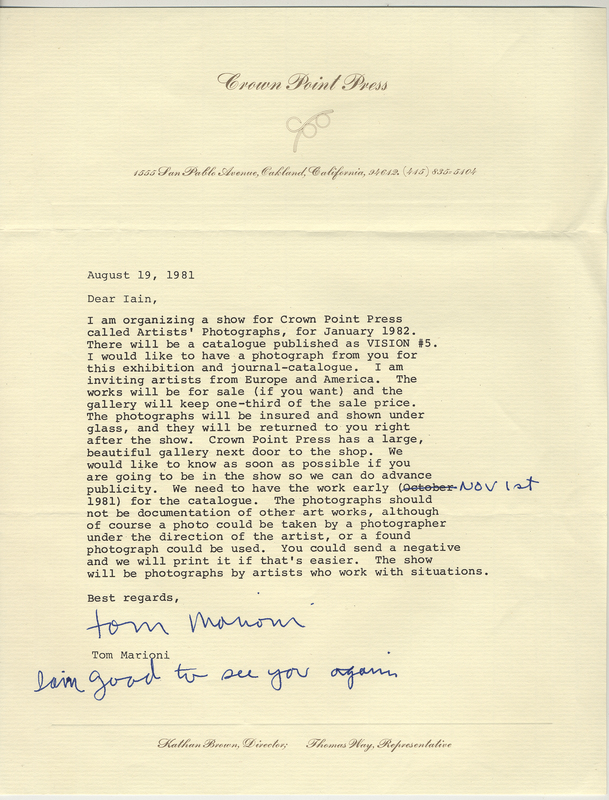 Crown Point Press
1555 San Pablo Avenue, Oakland, California, 94612. (415) 835-5104
August 19, 1981
Dear Iain,
I am organizing a show for Crown Point Press
called Artists' Photographs, for January 1982.
There will be a catalogue published as VISION #5.
I would like to have a photograph from you for
this exhibition and journal-catalogue.  I am
inviting artists from Europe and America.  The
works will be for sale (if you want) and the
gallery will keep one-third of the sale price.
The photographs will be insured and shown under
glass, and they will be returned to you right
after the show.  Crown Point Press has a large,
beautiful gallery next door to the shop.  We
would like to know as soon as possible if you
are going to be in the show so we can do advance
publicity.  We need to have the work early (October NOV 1st
1981) for the catalogue.  The photographs should
not be documentation of other art works, although
of course a photo could be taken by a photographer
under the direction of the artist, or a found
photograph could be used.  You could send a negative
and we will print it if that's easier.  The show
will be photographs by artists who work with situations.
Best regards,
Tom Marioni
Tom Marioni
Iain good to see you again
Kathan Brown, Director;     Thomas Way, Representative